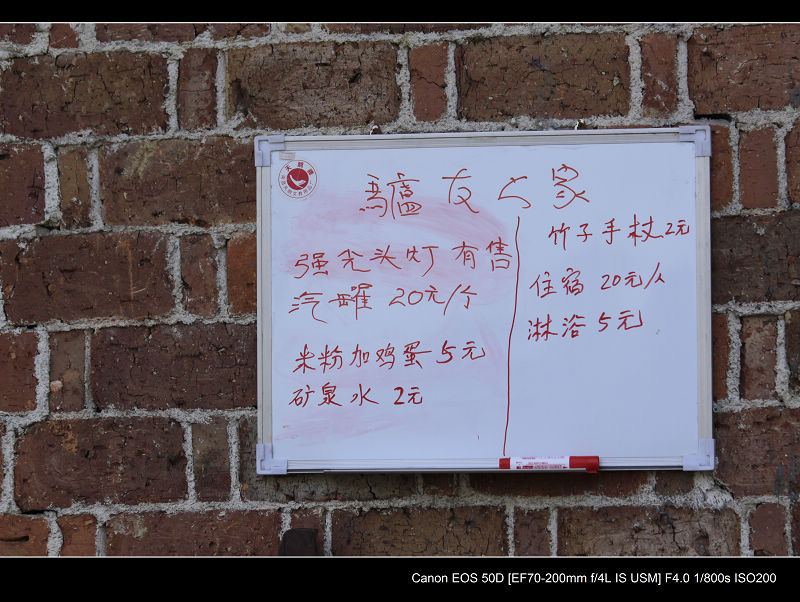 驢友之家
强光头灯有售
汽罐 20元/个
米粉加鸡蛋 5元
矿泉水 2元
竹子手杖2元
住宿 20元/人
淋浴 5元
Canon EOS 50D [EF70-200mm f/4L IS USM] F4.0 1/800s ISO200